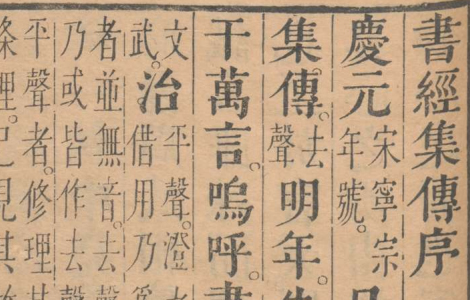 書經集傳序
慶元
宋寧宗
年號。
集傳。
去
聲
明年
干萬言。嗚呼。書
文
武。
治
平聲。澄
借用乃
者並無音。去聲
乃或皆作去聲
平聲者。修理其
條理。已見其